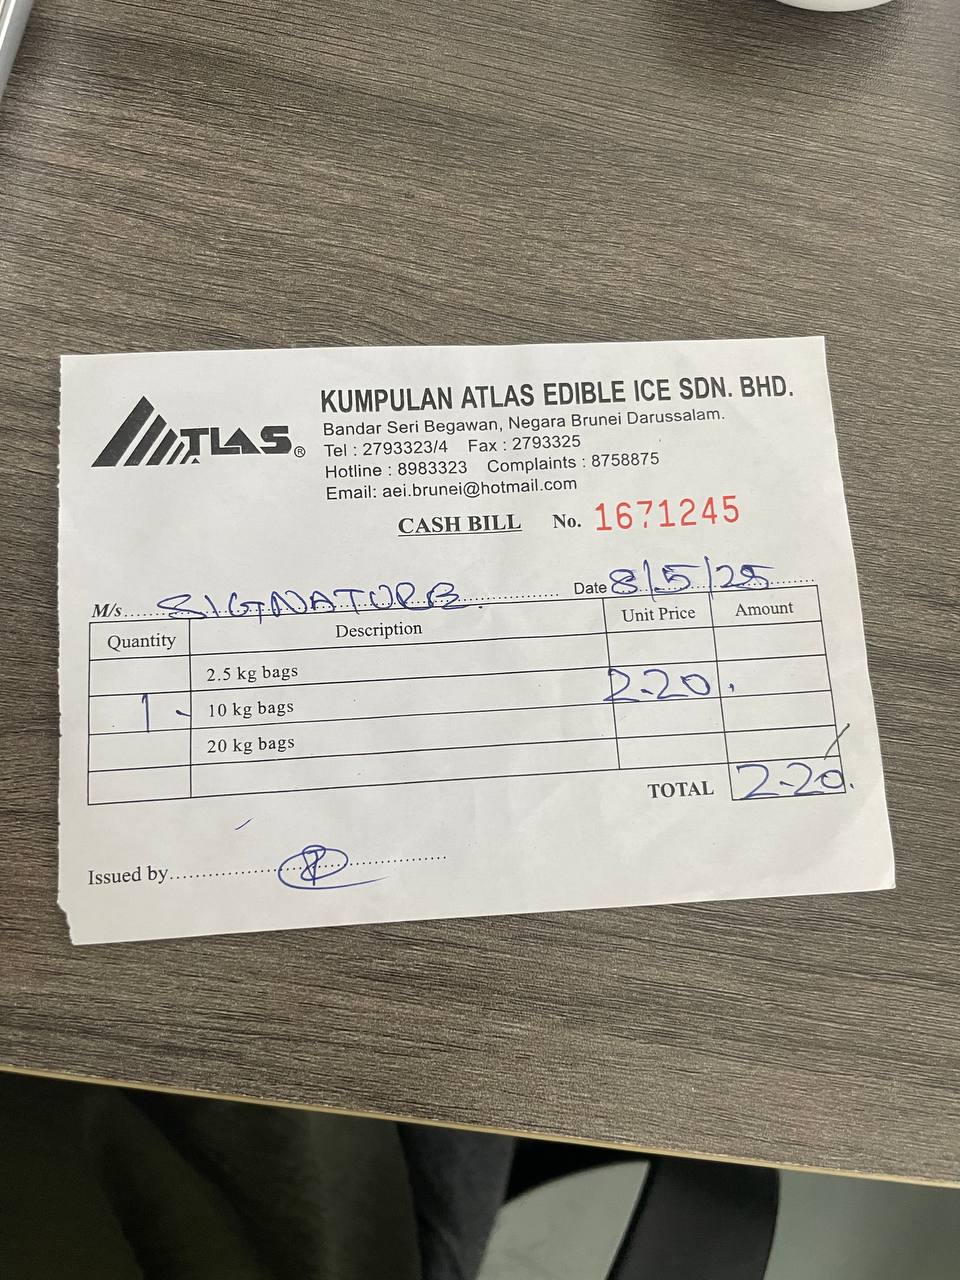 ATLAS®
KUMPULAN ATLAS EDIBLE ICE SDN. BHD.
Bandar Seri Begawan, Negara Brunei Darussalam.
Tel : 2793323/4 Fax : 2793325
Hotline : 8983323 Complaints : 8758875
Email: aei.brunei@hotmail.com
CASH BILL No. 1671245
M/s. SIGNATURE. Date 8/5/25
Quantity Description Unit Price Amount
2.5 kg bags
1 - 10 kg bags 2-20.
20 kg bags
TOTAL 2-20.
Issued by